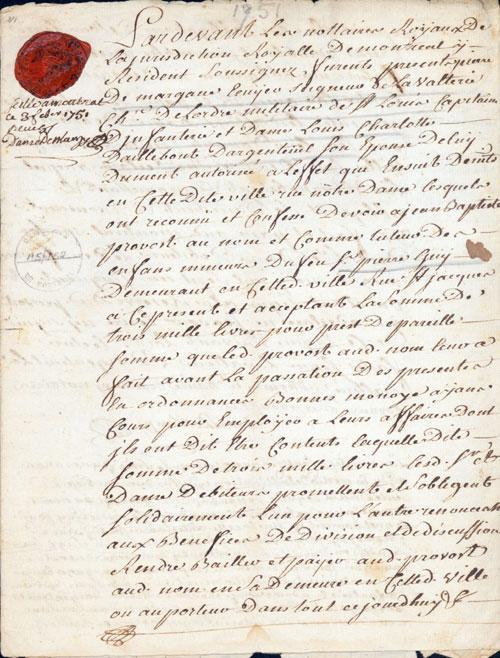 1751
Pardevant Les nottaires Royaux De
La jurisdiction Royalle De montreal y
Resident Soussignez furents presents pierre
De margane Ecuyer Seigneur de La Valterie
Ch.er De Lordre militaire de St Louis Capitaine
D'infanterie et Dame Louis Charlotte
Daillebout Dargenteüil Son Epouse De luy
Dument autorisé a Leffet que Ensuit Demts
en Cette Dite ville rue nôtre Dame lesquels
ont reconnu et Confessé Devoir a jean Baptiste
provost au nom et Comme tuteur Des
enfans mineurs Du feu Sr pierre Guy
Demeurant en Cetted. ville Rue St Jacques
a Ce present et acceptant La Somme De
trois mille livres pour prest De pareille
Somme que Led. provost aud. nom leur a
fait avant La passation Des presentes
En ordonnances Bonnes monoye ayans
Cours pour Employer a Leurs affaires Dont
jls ont Dit Etre Contents laquelle Dite
Somme De trois mille livres Lesd. Sr et
Dame Debiteurs promettent et Sobligent
Solidairement Lun pour Lautre renonceant
aux Benefices De Division et de discussion
Rendre Bailler et payer aud. provost
aud. nom en Sa Demeure en Cetted. Ville
ou au porteur Dans tout ce jourdhuy
Scellé a montreal
le 3 1751